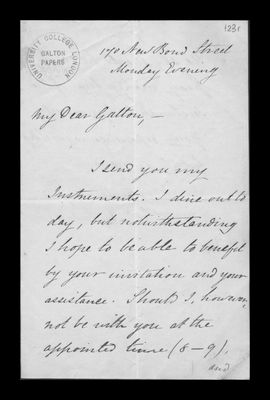 123r
UNIVERSITY COLLEGE LONDON
GALTON
PAPERS
170 New Bond Street
Monday Evening
My Dear Galton, —
I send you my
Instruments. I dine out to
day, but notwithstanding
I hope to be able to benefit
by your invitation and your
assistance. Should I, however,
not be with you at the
appointed time (8–9),
and